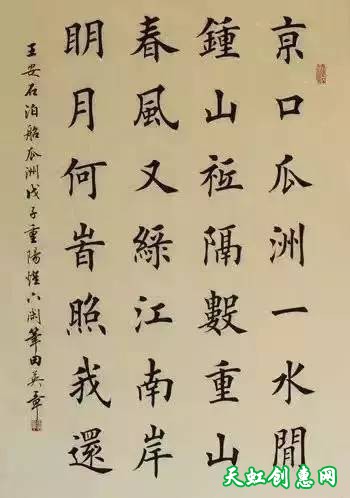 亰口瓜洲一水閒
鍾山祗隔數重山
春風又綠江南岸
眀月何旹照我還
王安石泊船瓜洲戊子重陽 筆田英章
天虹创惠网